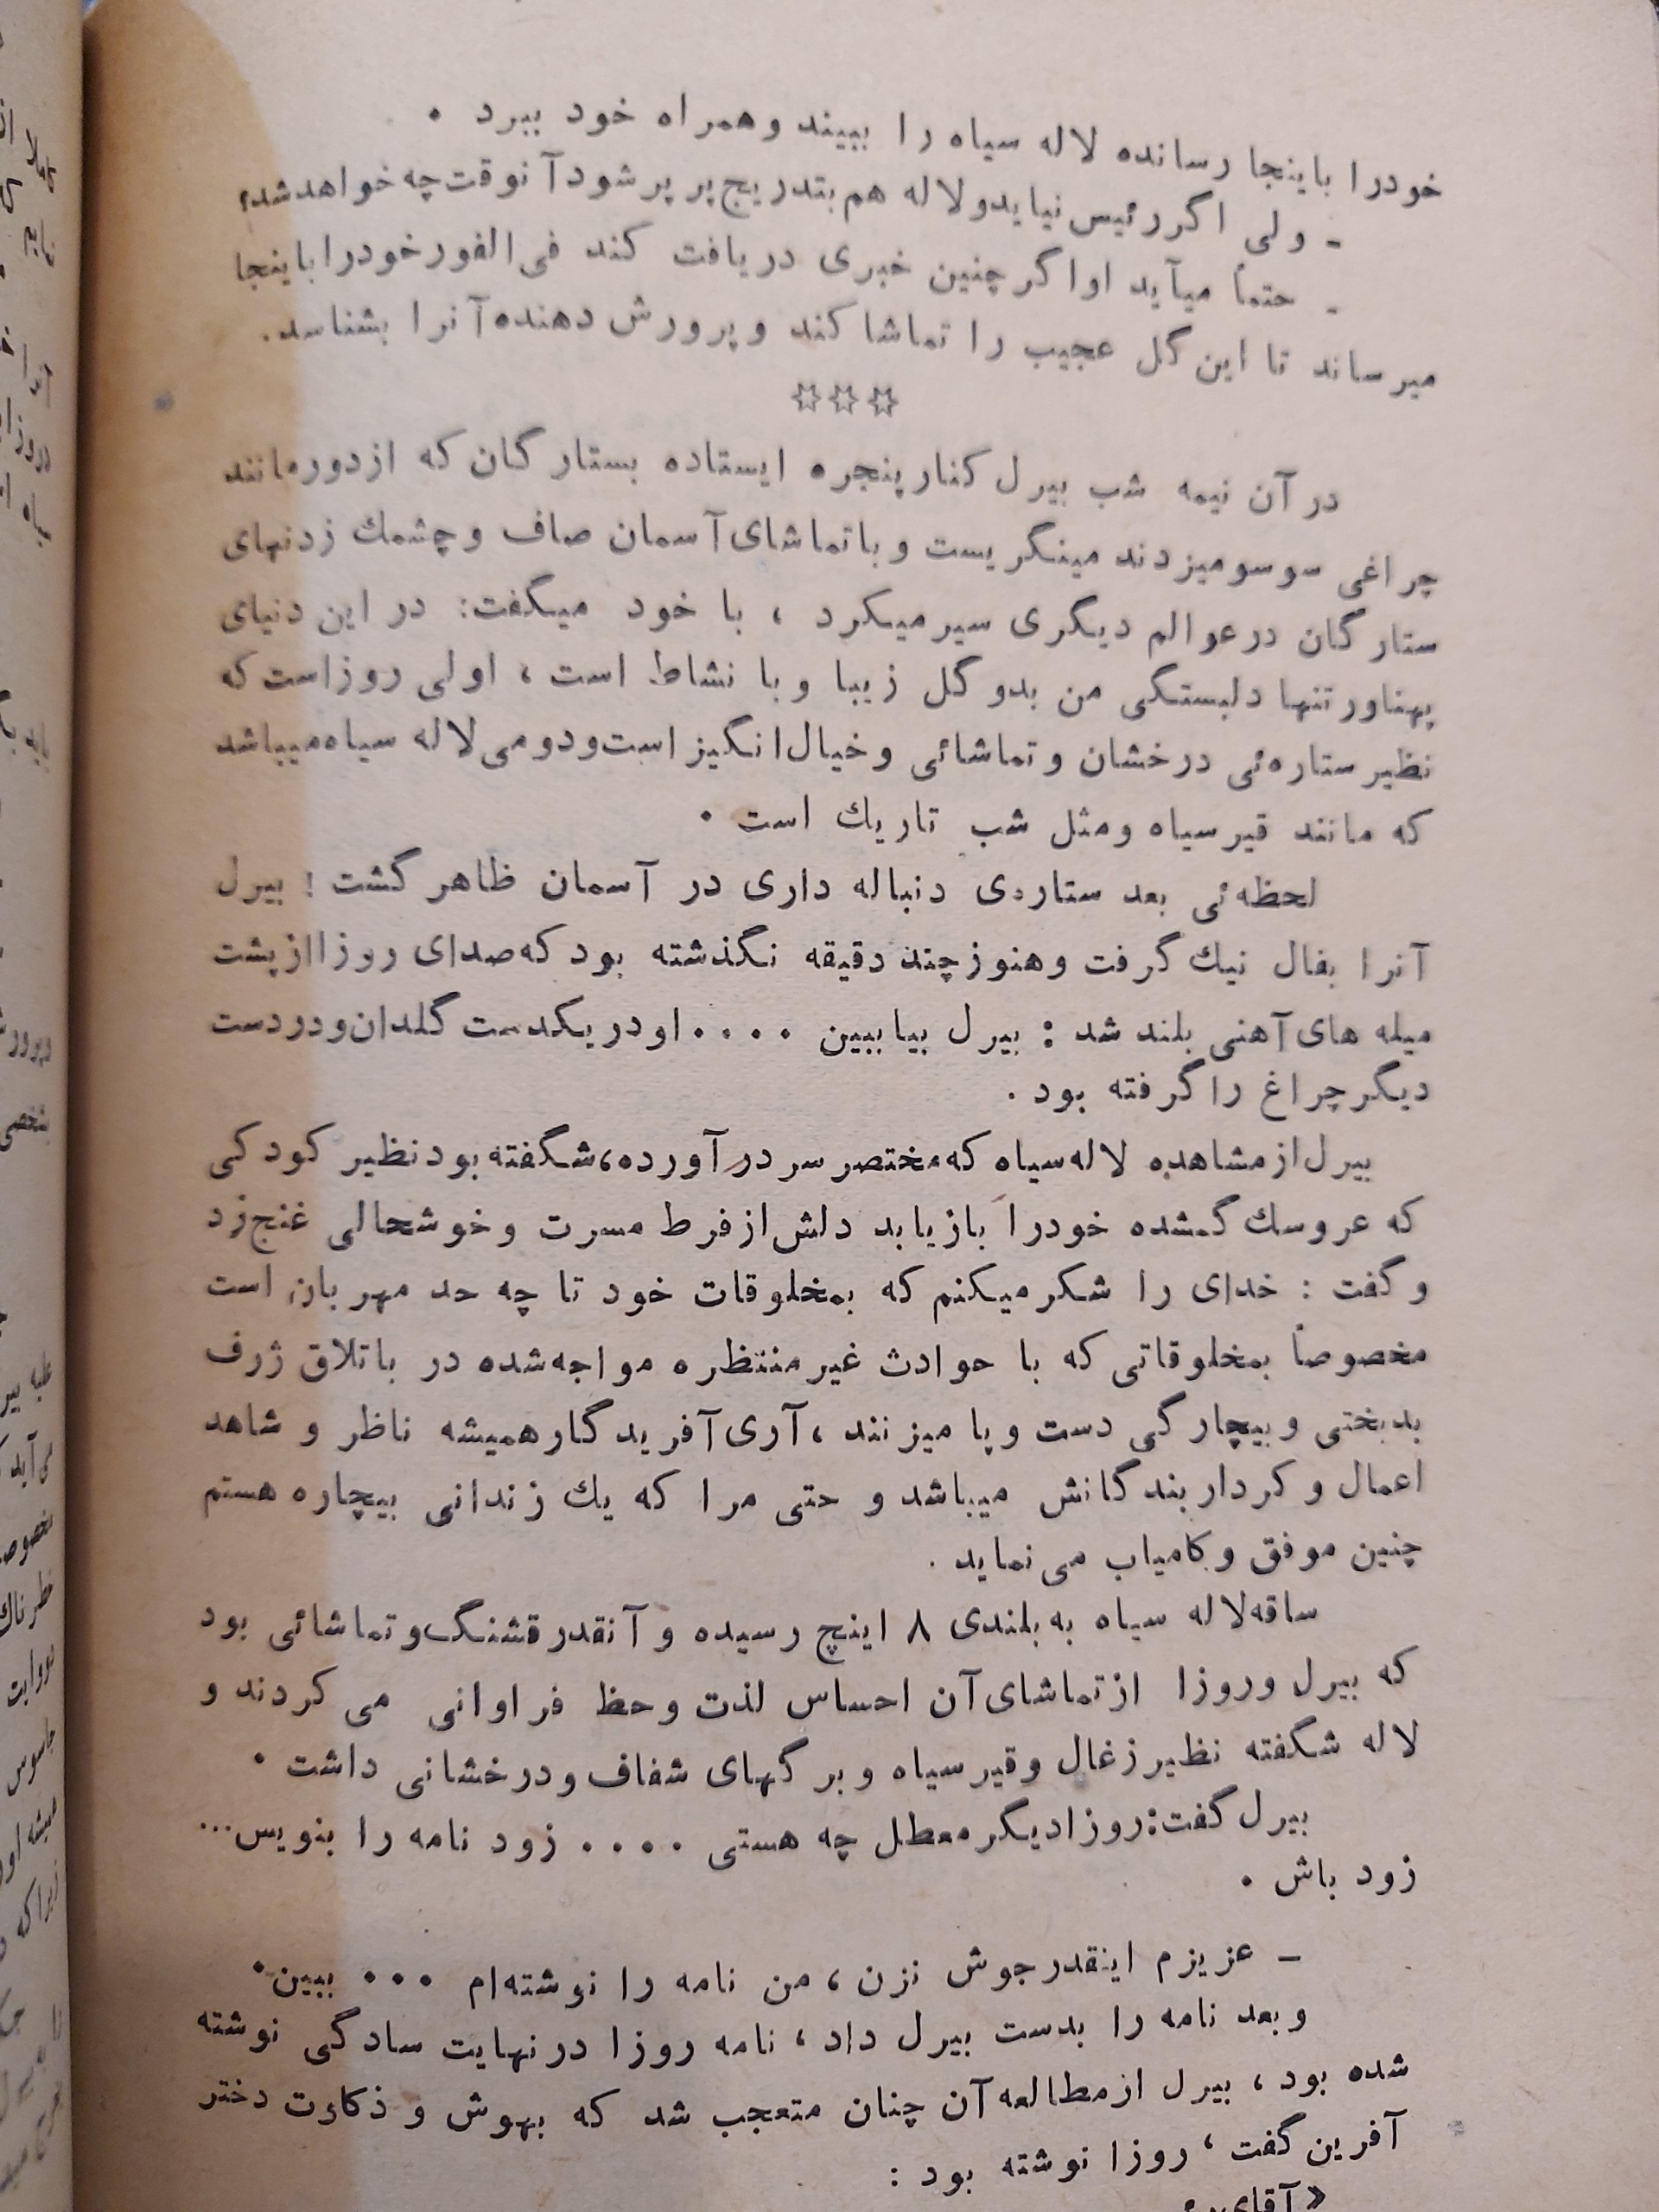 خودرا باینجا رسانده لاله سیاه را ببیند وهمراه خود ببرد .
- ولی اگررئیس نیایدولاله هم بتدریج پر پر شود آنوقت چه خواهد شد؟
- حتماً میآید اواگر چنین خبری دریافت کند فی‌الفور خودرا باینجا
میرساند تا این گل عجیب را تماشا کند وپرورش دهنده آنرا بشناسد.
☆☆☆
در آن نیمه شب بیرل کنار پنجره ایستاده بستارگان که ازدور مانند
چراغی سوسو میزدند مینگریست وباتماشای آسمان صاف وچشمك زدنهای
ستارگان درعوالم دیگری سیر میکرد ، با خود میگفت: در این دنیای
پهناور تنها دلبستگی من بدو گل زیبا وبا نشاط است ، اولی روزاست که
نظیر ستاره‌ئی درخشان وتماشائی وخیال‌انگیز است‌ودومی لاله سیاه میباشد
که مانند قیر سیاه ومثل شب تاریك است .
لحظه‌ئی بعد ستاره‌ی دنباله داری در آسمان ظاهر گشت ! بیرل
آنرا بفال نیك گرفت وهنوز چند دقیقه نگذشته بود که صدای روزا ازپشت
میله های آهنی بلند شد : بیرل بیا ببین .... او در یکدست گلدان‌ودر دست
دیگر چراغ را گرفته بود .
بیرل از مشاهده لاله سیاه که مختصر سر در آورده، شگفته بود نظیر کودکی
که عروسك گمشده خودرا بازیابد دلش از فرط مسرت وخوشحالی غنج زد
و گفت : خدای را شکر میکنم که بمخلوقات خود تا چه حد مهربان است
مخصوصاً بمخلوقاتی که با حوادث غیر منتظره مواجه شده در باتلاق ژرف
بدبختی وبیچارگی دست و پا میزنند ، آری آفریدگار همیشه ناظر و شاهد
اعمال و کردار بندگانش میباشد و حتی مرا که یك زندانی بیچاره هستم
چنین موفق و کامیاب می نماید .
ساقه لاله سیاه به بلندی ۸ اینچ رسیده و آنقدر قشنگ‌وتماشائی بود
که بیرل وروزا از تماشای آن احساس لذت وحظ فراوانی می کردند و
لاله شگفته نظیر زغال وقیر سیاه و برگهای شفاف ودرخشانی داشت .
بیرل گفت: روزا دیگر معطل چه هستی .... زود نامه را بنویس...
زود باش .
- عزیزم اینقدر جوش نزن ، من نامه را نوشته‌ام ... ببین.
وبعد نامه را بدست بیرل داد ، نامه روزا در نهایت سادگی نوشته
شده بود ، بیرل از مطالعه آن چنان متعجب شد که بهوش و ذکاوت دختر
آفرین گفت ، روزا نوشته بود :
«آقای